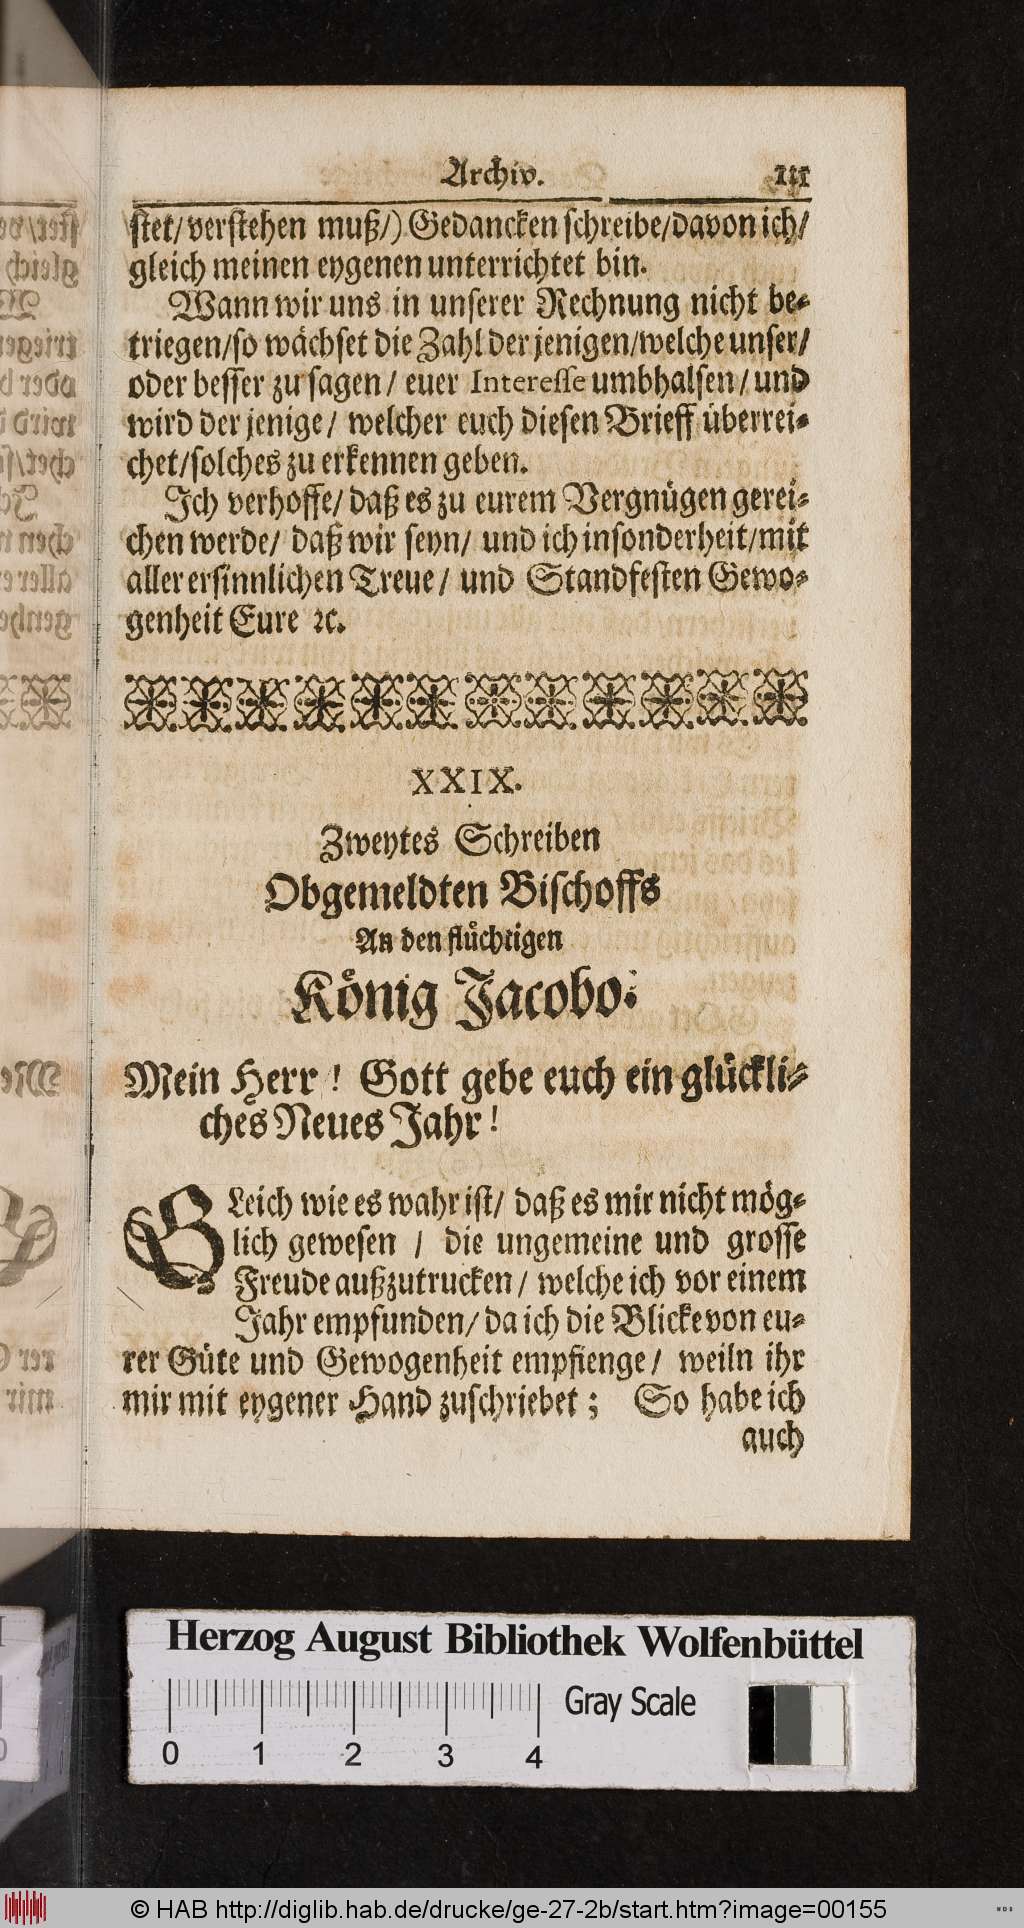 Archiv. 111
stet/ verstehen muß/) Gedancken schreibe/ davon ich/
gleich meinen eygenen unterrichtet bin.
Wann wir uns in unserer Rechnung nicht be-
triegen/ so wächset die Zahl der jenigen/ welche unser/
oder besser zu sagen/ euer Interesse umbhalsen/ und
wird der jenige/ welcher euch diesen Brieff überrei-
chet/ solches zu erkennen geben.
Ich verhoffe/ daß es zu eurem Vergnügen gerei-
chen werde/ daß wir seyn/ und ich insonderheit/ mit
aller ersinnlichen Treue/ und Standfesten Gewo-
genheit Eure ꝛc.
XXIX.
Zweytes Schreiben
Obgemeldten Bischoffs
An den flüchtigen
König Jacobo:
Mein Herr! Gott gebe euch ein glückli-
ches Neues Jahr!
GLeich wie es wahr ist/ daß es mir nicht mög-
lich gewesen / die ungemeine und grosse
Freude außzutrucken/ welche ich vor einem
Jahr empfunden/ da ich die Blicke von eu-
rer Güte und Gewogenheit empfienge/ weiln ihr
mir mit eygener Hand zuschriebet; So habe ich
auch
Herzog August Bibliothek Wolfenbüttel
Gray Scale
0 1 2 3 4
© HAB http://diglib.hab.de/drucke/ge-27-2b/start.htm?image=00155